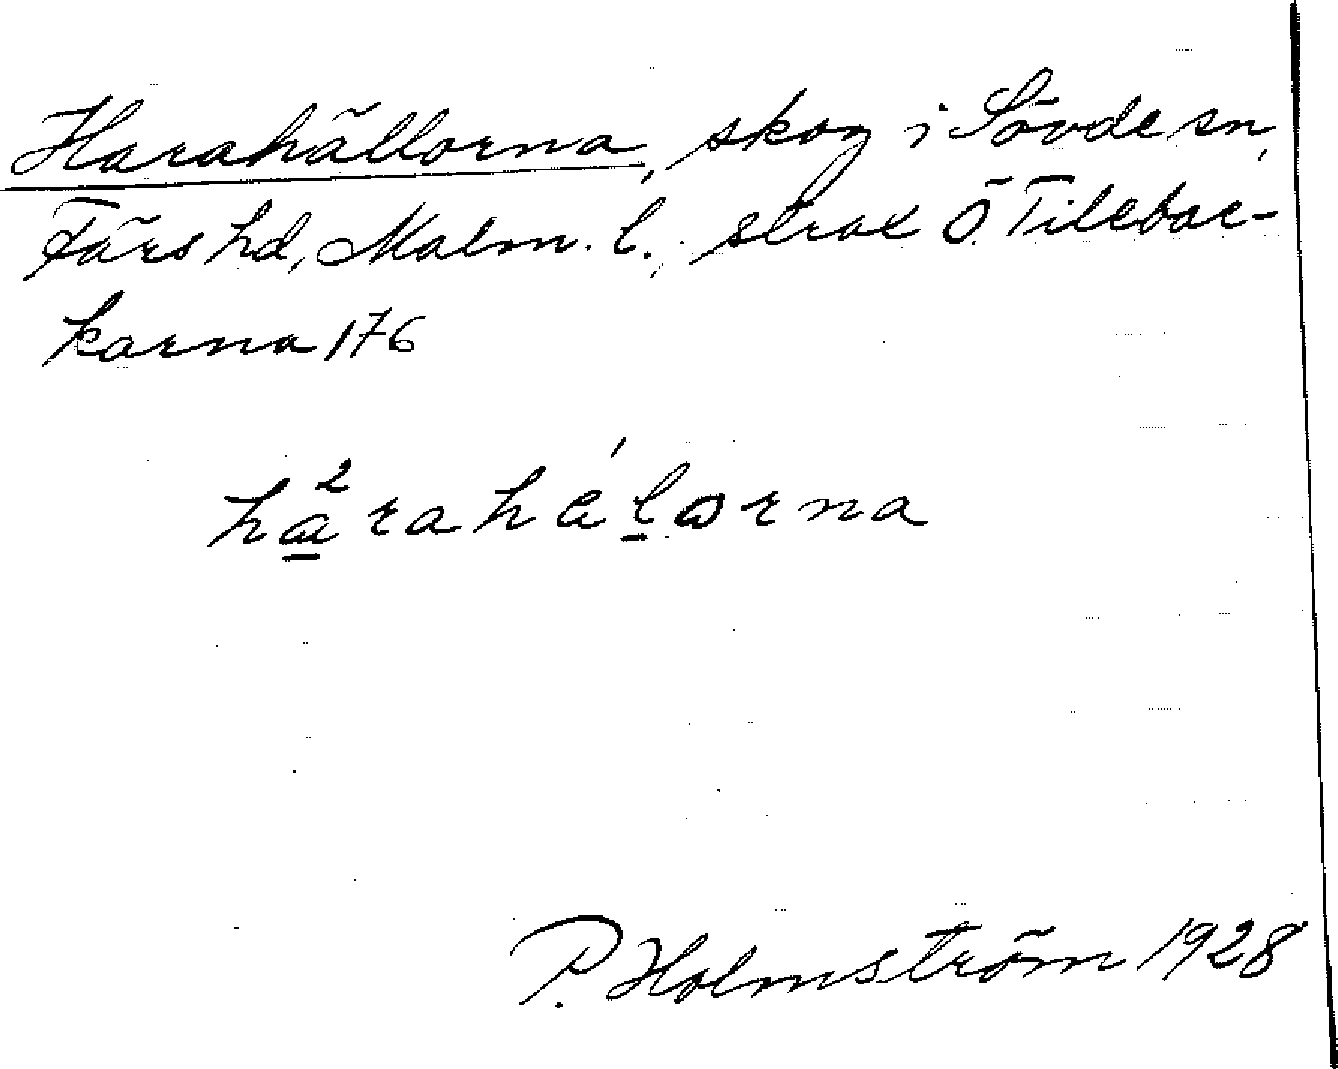 Harahällorna, skog i Sövde sn,
Färs hd, Malm. l., strax Ö. Tillebac-
karna 176
ha²raháḻorna
P. Holmström 1928